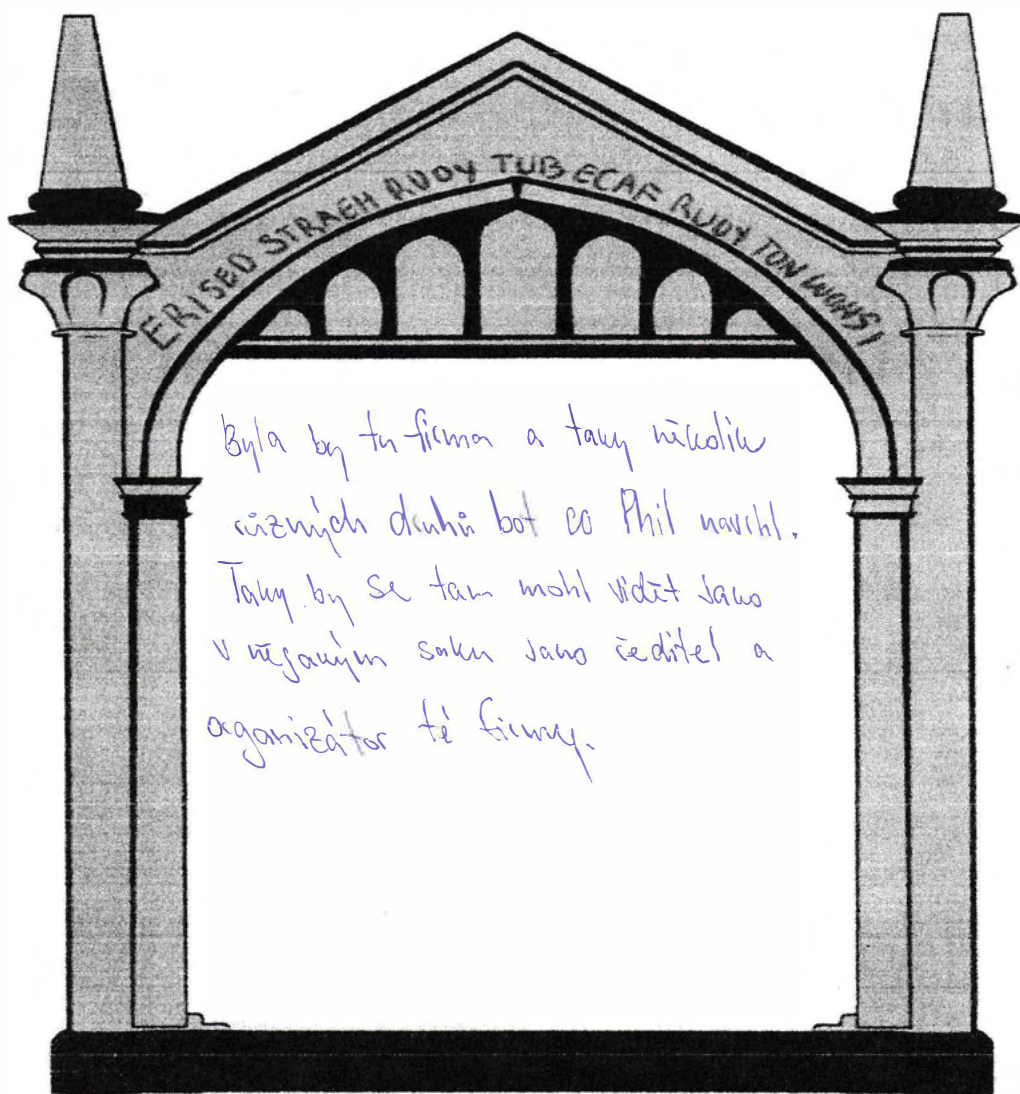 ERISED STRAEH RUOY TUB ECAF RUOY TON WOHSI
Byla by tu firma a taky několik
různých druhů bot co Phil navrhl.
Taky by se tam mohl vidět jako
v nějakým saku jako ředitel a
organizátor té firmy.